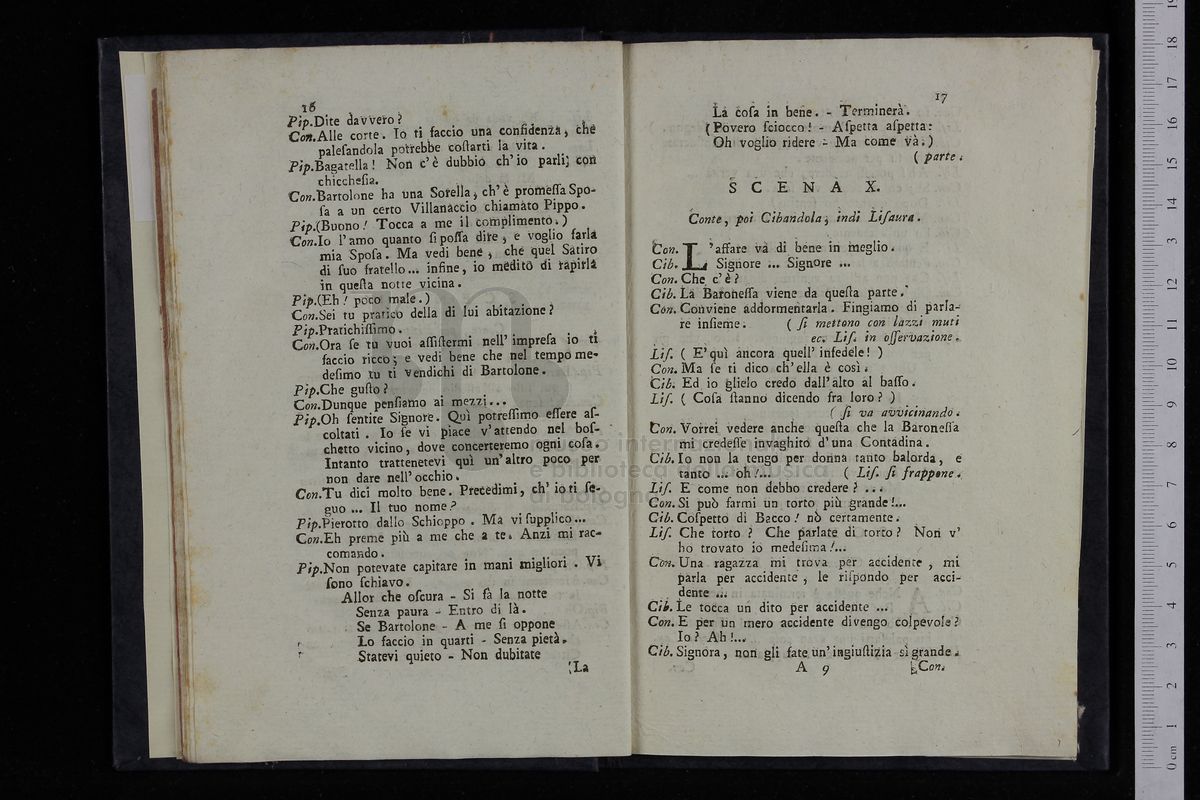 16
Pip.Dite davvero?
Con.Alle corte. Io ti faccio una confidenza, che
paleſandola potrebbe coſtarti la vita.
Pip.Bagatella! Non c'è dubbio ch'io parli; con
chiccheſia.
Con.Bartolone ha una Sorella, ch'è promeſſa Spo-
ſa a un certo Villanaccio chiamato Pippo.
Pip.(Buono! Tocca a me il complimento.)
Con.Io l'amo quanto ſi poſſa dire, e voglio farla
mia Spoſa. Ma vedi bene, che quel Satiro
di ſuo fratello... infine, io meditò di rapirla
in queſta notte vicina.
Pip.(Eh! poco male.)
Con.Sei tu pratico della di lui abitazione?
Pip.Pratichiſſimo.
Con.Ora ſe tu vuoi aſſiſtermi nell'impreſa io ti
faccio ricco; e vedi bene che nel tempo me-
deſimo tu ti vendichi di Bartolone.
Pip.Che guſto?
Con.Dunque penſiamo ai mezzi...
Pip.Oh ſentite Signore. Quì potreſſimo eſſere aſ-
coltati. Io ſe vi piace v'attendo nel boſ-
chetto vicino, dove concerteremo ogni coſa.
Intanto trattenetevi quì un'altro poco per
non dare nell'occhio.
Con.Tu dici molto bene. Precedimi, ch'io ti ſe-
guo ... Il tuo nome?
Pip.Pierotto dallo Schioppo. Ma vi ſupplico...
Con.Eh preme più a me che a te. Anzi mi rac-
comando.
Pip.Non potevate capitare in mani migliori. Vi
ſono ſchiavo.
Allor che oſcura - Si fà la notte
Senza paura - Entro di là.
Se Bartolone - A me ſi oppone
Lo faccio in quarti - Senza pietà.
Statevi quieto - Non dubitate
La
17
La coſa in bene. - Terminerà.
(Povero ſciocco! - Aſpetta aſpetta:
Oh voglio ridere - Ma come và.)
( parte.
SCENA X.
Conte, poi Cibandola, indi Liſaura.
Con. L'affare và di bene in meglio.
Cib. Signore ... Signore ...
Con. Che c'è?
Cib. La Baroneſſa viene da queſta parte.
Con. Conviene addormentarla. Fingiamo di parla-
re inſieme. ( ſi mettono con lazzi muti
ec. Liſ. in oſſervazione.
Liſ. ( E' quì ancora quell'infedele! )
Con. Ma ſe ti dico ch'ella è così.
Cib. Ed io glielo credo dall'alto al baſſo.
Liſ. ( Coſa ſtanno dicendo fra loro? )
( ſi va avvicinando.
Con. Vorrei vedere anche queſta che la Baroneſſa
mi credeſſe invaghito d'una Contadina.
Cib. Io non la tengo per donna tanto balorda, e
tanto ... oh!... ( Liſ. ſi frappone.
Liſ. E come non debbo credere? ...
Con. Si può farmi un torto più grande!...
Cib. Coſpetto di Bacco! nò certamente.
Liſ. Che torto? Che parlate di torto? Non v'
ho trovato io medeſima!...
Con. Una ragazza mi trova per accidente, mi
parla per accidente, le riſpondo per acci-
dente ...
Cib. Le tocca un dito per accidente ...
Con. E per un mero accidente divengo colpevole?
Io? Ah!...
Cib. Signora, non gli fate un'ingiuſtizia sì grande.
A 9 Con.
museo internazionale
e biblioteca della musica
di bologna
0 cm 1 2 3 4 5 6 7 8 9 10 11 12 13 14 15 16 17 18 19